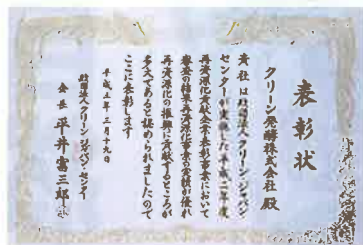 表彰状
クリーン発酵株式会社 殿
貴社は財団法人クリーン・ジャパン・
センターが実施した平成二年度
再資源化貢献企業表彰事業において
審査の結果再資源化事業の実績が優れ
再資源化の推進に貢献するところが
多大であると認められましたので
ここに表彰します
平成三年三月十九日
財団法人クリーン・ジャパン・センター
会長 平井富三郎